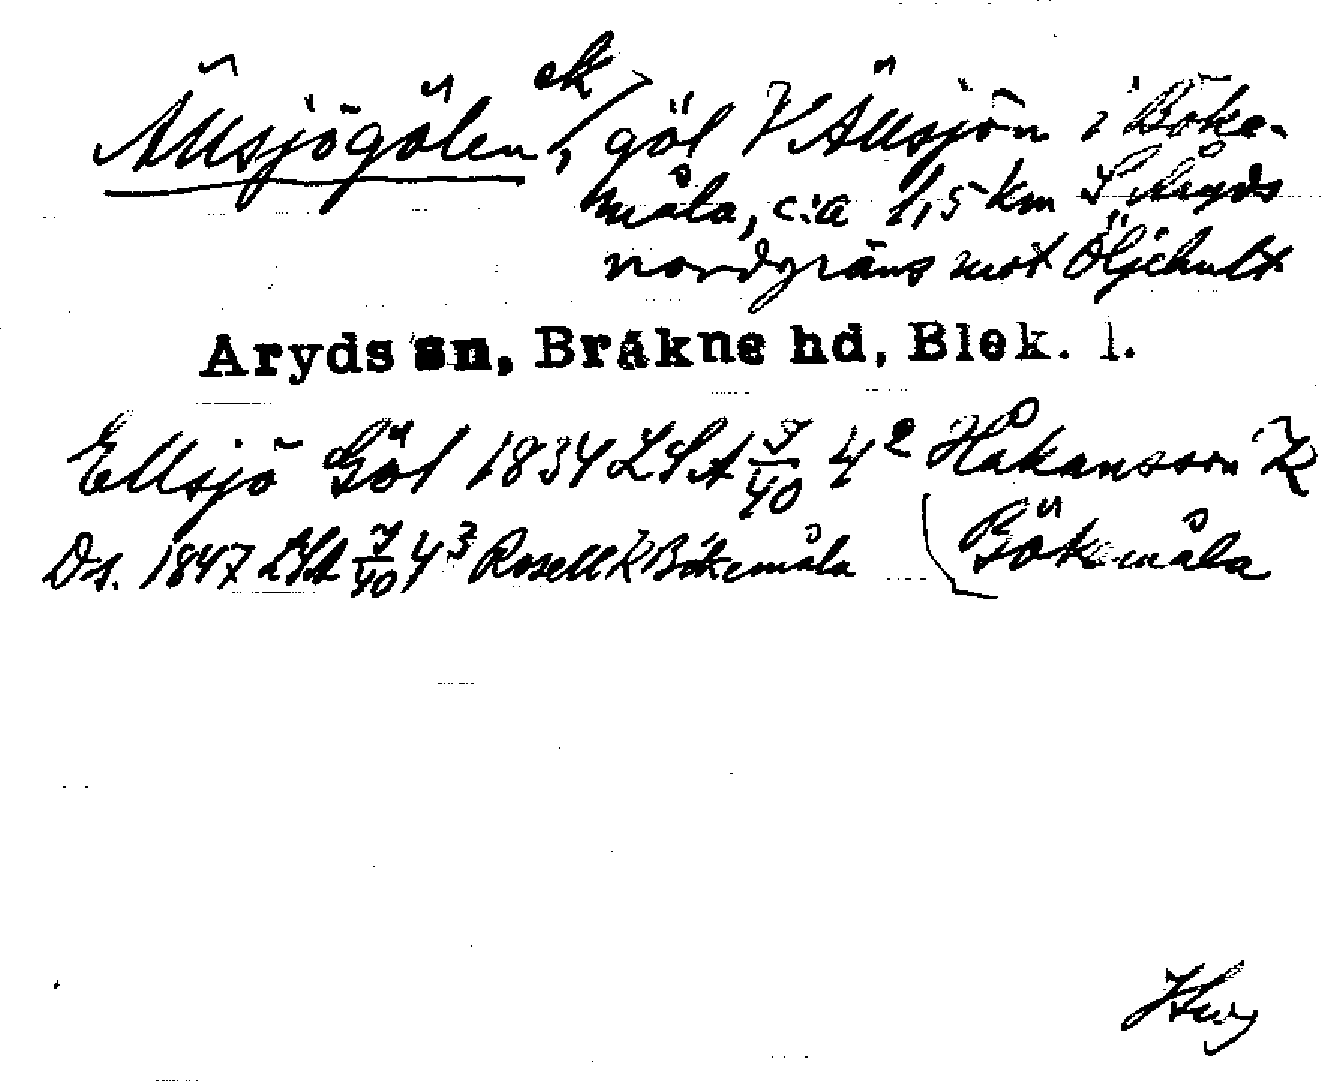 Ällsjögölen, ek göl V Ällsjön i Böke-
måla, c:a 1,5 km S Åryds
nordgräns mot Öljehult
Åryds sn, Bräkne hd, Blek. l.
Ellsjö Göl 1834 LSA 7/40 4² Håkansson K
Bökemåla
Ds. 1847 LSA 7/40 4³ Rosell K Bökemåla